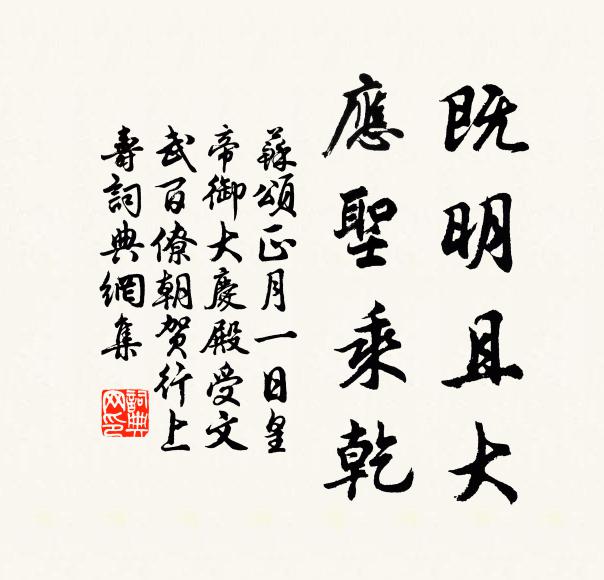 既明且大
應聖乘乾
蘇頌正月一日皇
帝御大慶殿受文
武百僚朝賀行上
壽詞典網集
詞典
网印